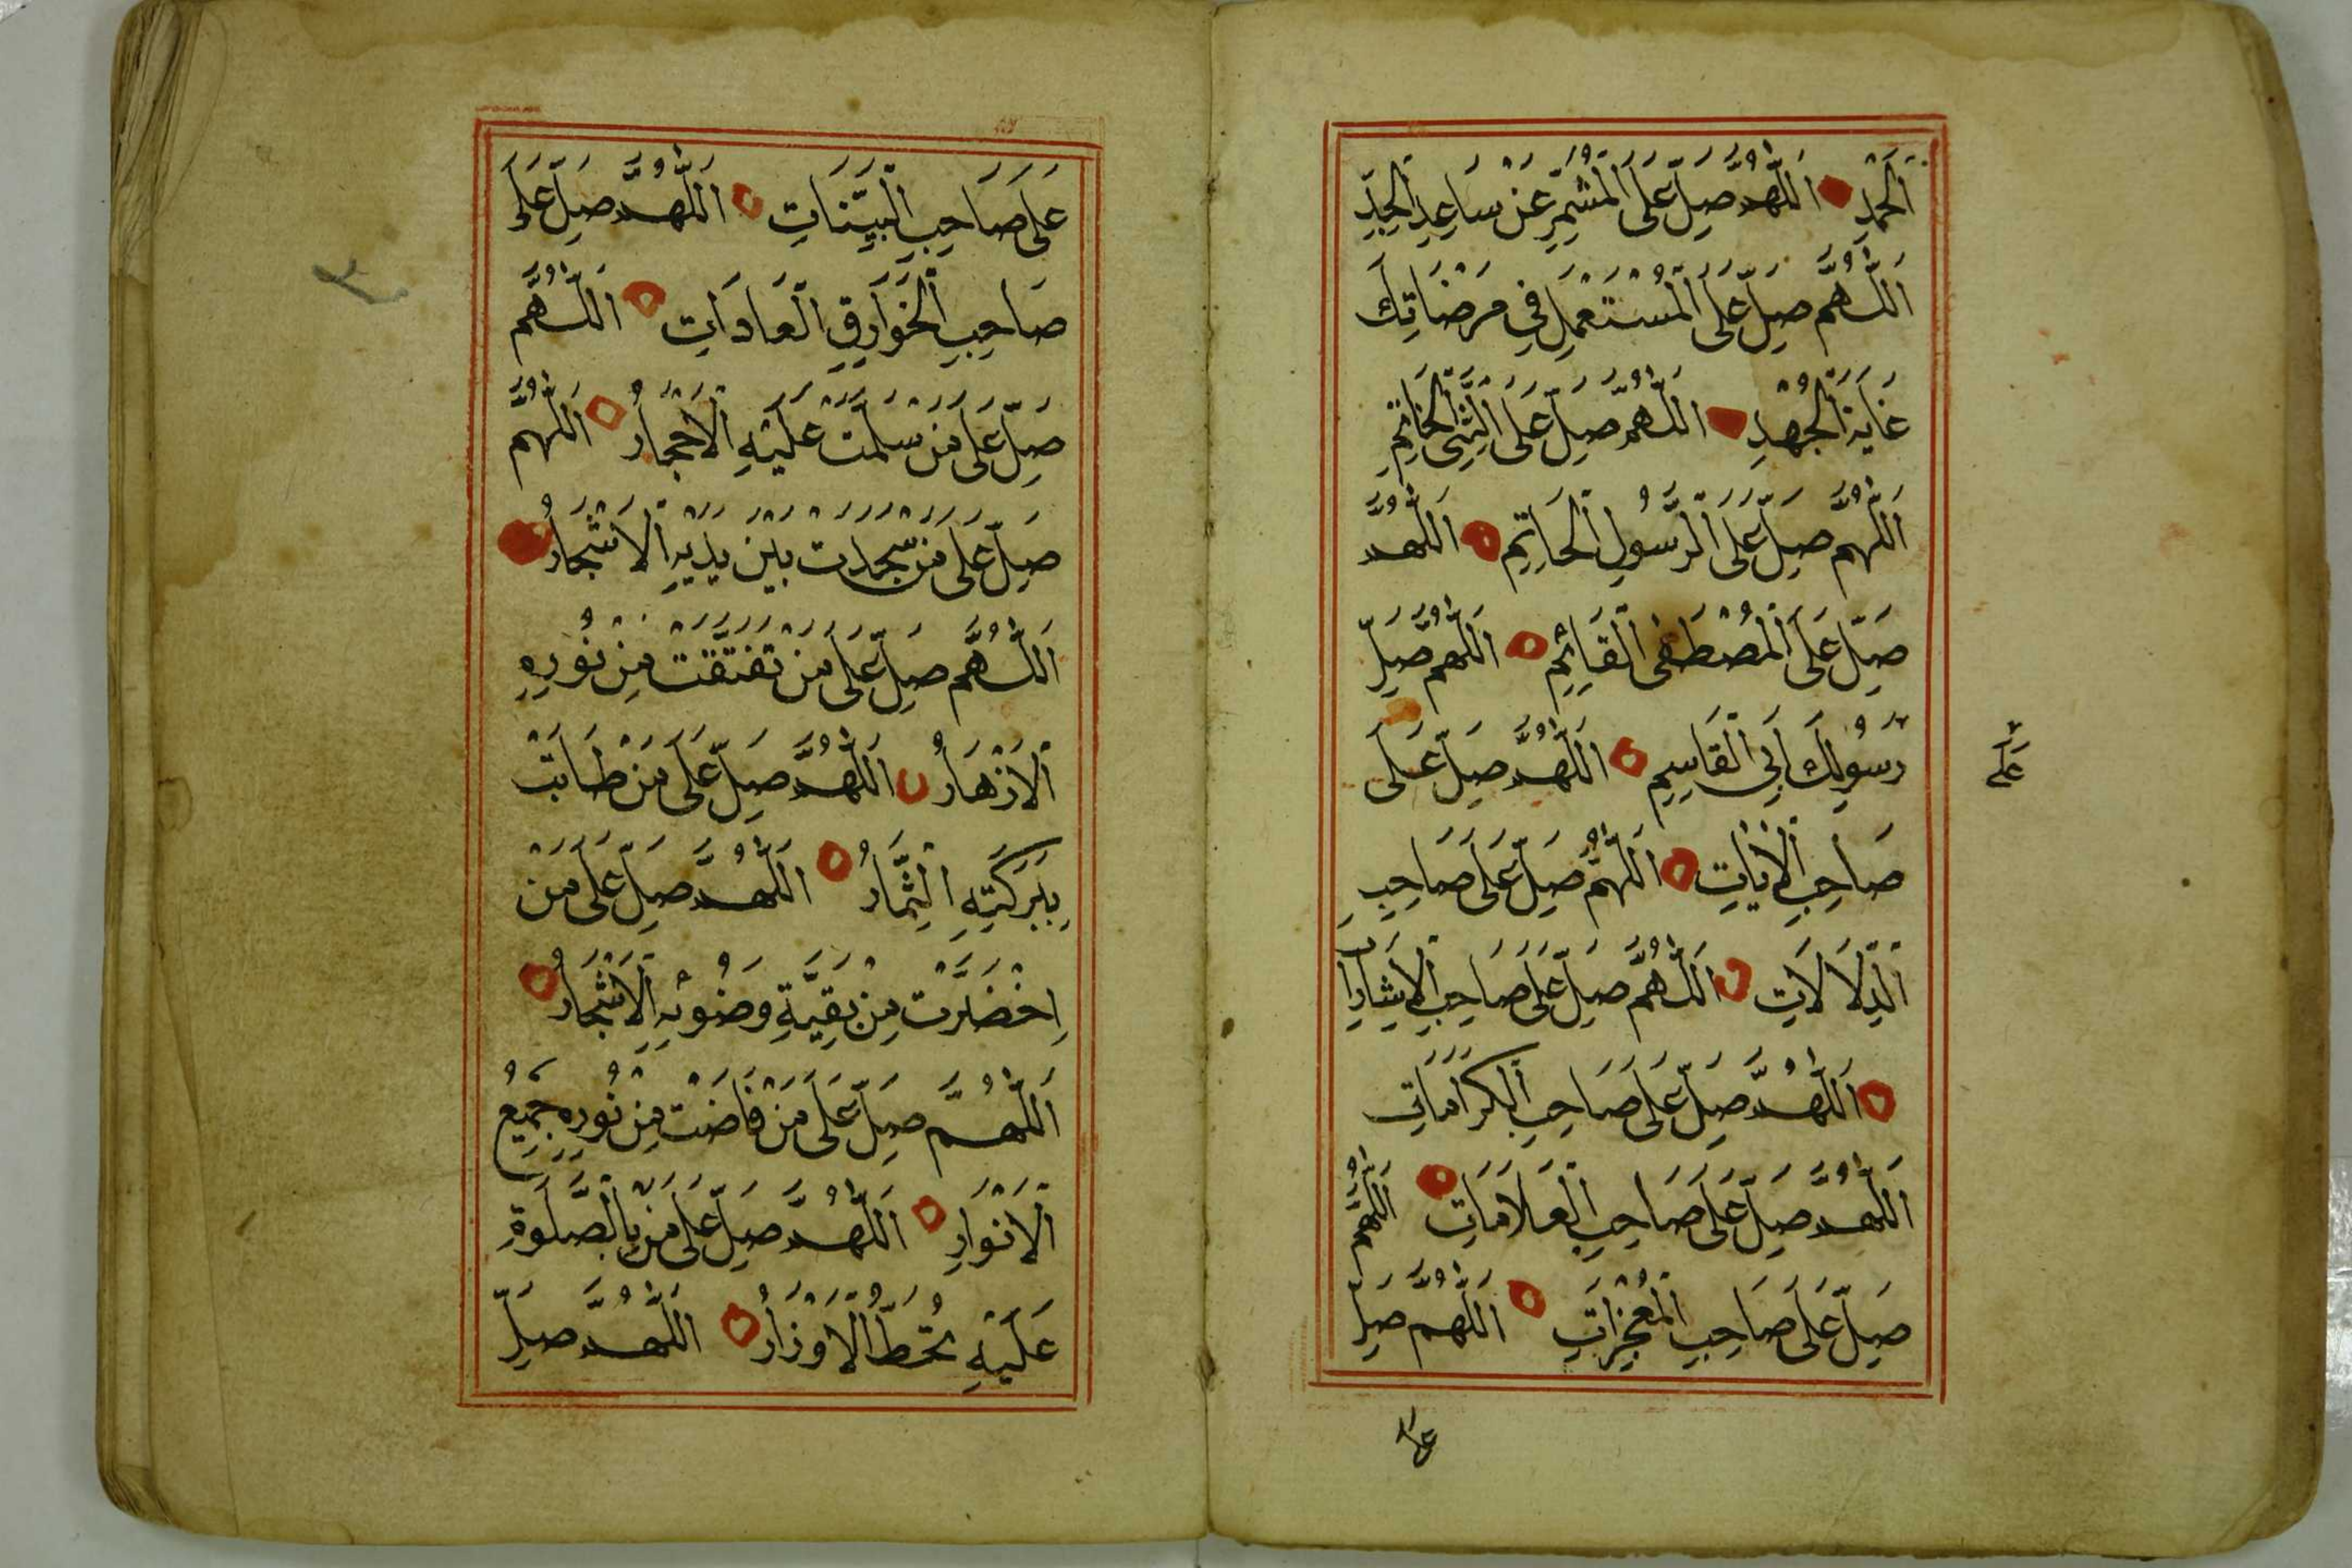 اَلْحَمْدِ اَللّٰهُمَّ صَلِّ عَلَى الْمُشَمِّرِ عَنْ سَاعِدِ الْجِدِّ
اَللّٰهُمَّ صَلِّ عَلَى الْمُسْتَعْمِلِ فِي مَرْضَاتِكَ
غَايَةَ الْجُهْدِ اَللّٰهُمَّ صَلِّ عَلَى النَّبِيِّ الْخَاتِمِ
اَللّٰهُمَّ صَلِّ عَلَى الرَّسُولِ الْخَاتِمِ اَللّٰهُمَّ
صَلِّ عَلَى الْمُصْطَفَى الْقَائِمِ اَللّٰهُمَّ صَلِّ
عَلَى
رَسُولِكَ اَبِي الْقَاسِمِ اَللّٰهُمَّ صَلِّ عَلَى
صَاحِبِ الْاٰيَاتِ اَللّٰهُمَّ صَلِّ عَلَى صَاحِبِ
الدِّلَالَاتِ اَللّٰهُمَّ صَلِّ عَلَى صَاحِبِ الْاِشَارَات
اَللّٰهُمَّ صَلِّ عَلَى صَاحِبِ الْكَرَامَاتِ
اَللّٰهُمَّ صَلِّ عَلَى صَاحِبِ الْعَلَامَاتِ اَللّٰهُمَّ
صَلِّ عَلَى صَاحِبِ الْمُعْجِزَاتِ اَللّٰهُمَّ صَلِّ
على
عَلَى صَاحِبِ الْبَيِّنَاتِ اَللّٰهُمَّ صَلِّ عَلَى
صَاحِبِ الْخَوَارِقِ الْعَادَاتِ اَللّٰهُمَّ
صَلِّ عَلَى مَنْ سَلَّمَتْ عَلَيْهِ الْاَحْجَارُ اَللّٰهُمَّ
صَلِّ عَلَى مَنْ سَجَدَتْ بَيْنَ يَدَيْهِ الْاَشْجَارُ
اَللّٰهُمَّ صَلِّ عَلَى مَنْ تَفَتَّقَتْ مِنْ نُورِهِ
الْاَزْهَارُ اَللّٰهُمَّ صَلِّ عَلَى مَنْ طَابَتْ
بِبَرَكَتِهِ الثِّمَارُ اَللّٰهُمَّ صَلِّ عَلَى مَنْ
اِخْضَرَّتْ مِنْ بَقِيَّةِ وَضُوْئِهِ الْاَشْجَارُ
اَللّٰهُمَّ صَلِّ عَلَى مَنْ فَاضَتْ مِنْ نُورِهِ جَمِيعُ
الْاَنْوَارِ اَللّٰهُمَّ صَلِّ عَلَى مَنْ بِالصَّلٰوةِ
عَلَيْهِ تُحَطُّ الْاَوْزَارُ اَللّٰهُمَّ صَلِّ